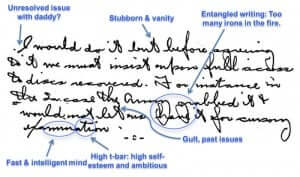 Unresolved issue
with daddy?
Stubborn & vanity
Entangled writing: Too
many irons in the fire.
I would do it but before agreeing
to it we must insist upon full access
to discs recovered. For instance in
the case the Army grabbed it &
would not let us have it for cursory
examination.
Guilt, past issues
Fast & intelligent mind
High t-bar: high self-
esteem and ambitious